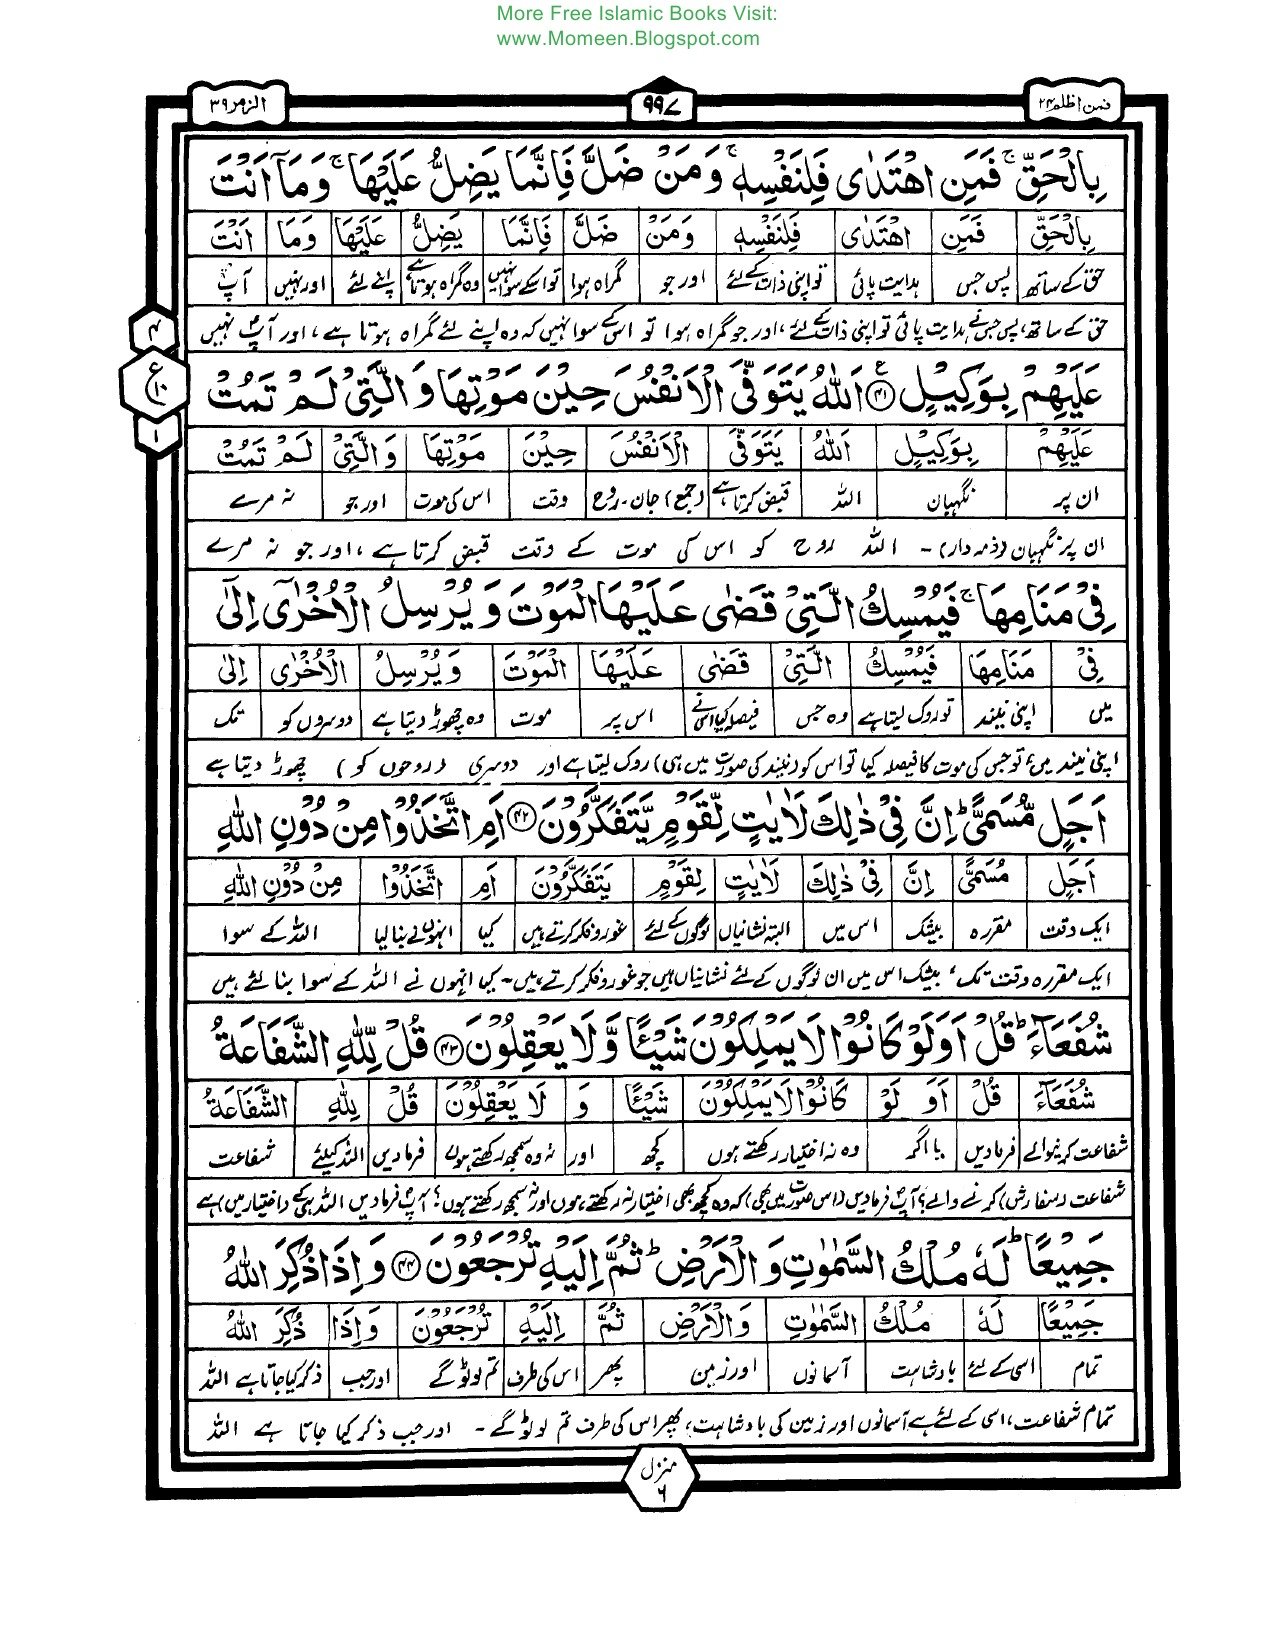 More Free Islamic Books Visit:
www.Momeen.Blogspot.com
فمن اظلم ۲۴
۹۹۷
الزمر ۳۹
بِالْحَقِّ ۚ فَمَنِ اهْتَدٰى فَلِنَفْسِهٖ ۚ وَمَنْ ضَلَّ فَاِنَّمَا يَضِلُّ عَلَيْهَا ۚ وَمَآ اَنْتَ
بِالْحَقِّ فَمَنِ اهْتَدٰى فَلِنَفْسِهٖ وَمَنْ ضَلَّ فَاِنَّمَا يَضِلُّ عَلَيْهَا وَمَا اَنْتَ
حق کے ساتھ پس جس ہدایت پائی تو اپنی ذات کے لئے اور جو گمراہ ہوا تو اسکے سوا نہیں وہ گمراہ ہوتا ہے اپنے لئے اور نہیں آپ
حق کے ساتھ، پس جس نے ہدایت پائی تو اپنی ذات کے لئے، اور جو گمراہ ہوا تو اس کے سوا نہیں کہ وہ اپنے لئے گمراہ ہوتا ہے، اور آپ نہیں
۴
ع
۱۰
۱
عَلَيْهِمْ بِوَكِيْلٍ ۴۱ اَللّٰهُ يَتَوَفَّى الْاَنْفُسَ حِيْنَ مَوْتِهَا وَالَّتِيْ لَمْ تَمُتْ
عَلَيْهِمْ بِوَكِيْلٍ اَللّٰهُ يَتَوَفَّى الْاَنْفُسَ حِيْنَ مَوْتِهَا وَالَّتِيْ لَمْ تَمُتْ
ان پر نگہبان اللہ قبض کرتا ہے (جمع) جان۔روح وقت اس کی موت اور جو نہ مرے
ان پر نگہبان (ذمہ دار) ۔ اللہ روح کو اس کی موت کے وقت قبض کرتا ہے، اور جو نہ مرے
فِيْ مَنَامِهَا ۚ فَيُمْسِكُ الَّتِيْ قَضٰى عَلَيْهَا الْمَوْتَ وَيُرْسِلُ الْاُخْرٰٓى اِلٰٓى
فِيْ مَنَامِهَا فَيُمْسِكُ الَّتِيْ قَضٰى عَلَيْهَا الْمَوْتَ وَيُرْسِلُ الْاُخْرٰٓى اِلٰٓى
میں اپنی نیند تو روک لیتا ہے وہ جس فیصلہ کیا اس نے اس پر موت وہ چھوڑ دیتا ہے دوسروں کو تک
اپنی نیند میں، تو جس کی موت کا فیصلہ کیا تو اس کو (نیند کی صورت میں ہی) روک لیتا ہے اور دوسری (روحوں کو) چھوڑ دیتا ہے
اَجَلٍ مُّسَمًّى ؕ اِنَّ فِيْ ذٰلِكَ لَاٰيٰتٍ لِّقَوْمٍ يَّتَفَكَّرُوْنَ ۴۲ اَمِ اتَّخَذُوْا مِنْ دُوْنِ اللّٰهِ
اَجَلٍ مُسَمًّى اِنَّ فِيْ ذٰلِكَ لَاٰيٰتٍ لِقَوْمٍ يَتَفَكَّرُوْنَ اَمِ اتَّخَذُوْا مِنْ دُوْنِ اللّٰهِ
ایک وقت مقررہ بیشک اس میں البتہ نشانیاں لوگوں کے لئے غور و فکر کرتے ہیں کیا انہوں نے بنا لیا اللہ کے سوا
ایک مقررہ وقت تک، بیشک اس میں ان لوگوں کے لئے نشانیاں ہیں جو غور و فکر کرتے ہیں۔ کیا انہوں نے اللہ کے سوا بنا لئے ہیں
شُفَعَآءَ ؕ قُلْ اَوَلَوْ كَانُوْا لَا يَمْلِكُوْنَ شَيْـًٔا وَّلَا يَعْقِلُوْنَ ۴۳ قُلْ لِّلّٰهِ الشَّفَاعَةُ
شُفَعَآءَ قُلْ اَوَ لَوْ كَانُوْا لَا يَمْلِكُوْنَ شَيْـًٔا وَ لَا يَعْقِلُوْنَ قُلْ لِلّٰهِ الشَّفَاعَةُ
شفاعت کرنیوالے فرمادیں یا اگر وہ نہ اختیار رکھتے ہوں کچھ اور نہ وہ سمجھ رکھتے ہوں فرمادیں اللہ کیلئے شفاعت
شفاعت (سفارش) کرنے والے؟ آپ فرمادیں (اس صورت میں بھی) کہ وہ کچھ بھی اختیار نہ رکھتے ہوں اور نہ سمجھ رکھتے ہوں؟ آپ فرمادیں اللہ ہی کے (اختیار میں) ہے
جَمِيْعًا ؕ لَهٗ مُلْكُ السَّمٰوٰتِ وَالْاَرْضِ ؕ ثُمَّ اِلَيْهِ تُرْجَعُوْنَ ۴۴ وَاِذَا ذُكِرَ اللّٰهُ
جَمِيْعًا لَهٗ مُلْكُ السَّمٰوٰتِ وَالْاَرْضِ ثُمَّ اِلَيْهِ تُرْجَعُوْنَ وَاِذَا ذُكِرَ اللّٰهُ
تمام اسی کے لئے بادشاہت آسمانوں اور زمین پھر اس کی طرف تم لوٹو گے اور جب ذکر کیا جاتا ہے اللہ
تمام شفاعت، اسی کے لئے ہے آسمانوں اور زمین کی بادشاہت، پھر اس کی طرف تم لوٹو گے ۔ اور جب ذکر کیا جاتا ہے اللہ
منزل
۶